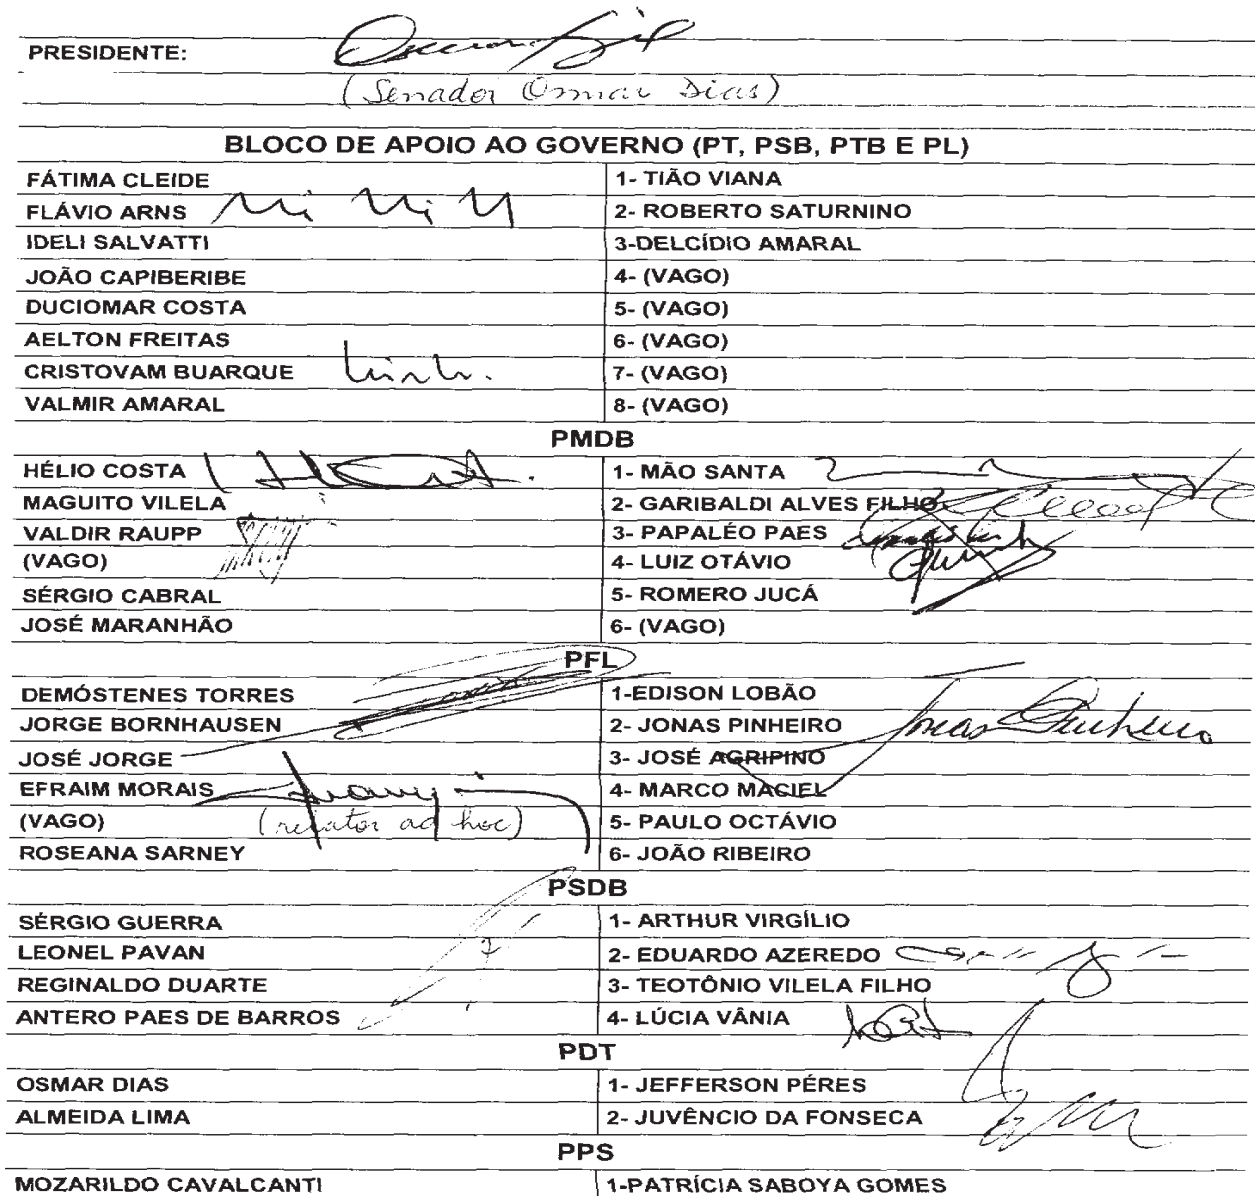 PRESIDENTE:
(Senador Osmar Dias)
BLOCO DE APOIO AO GOVERNO (PT, PSB, PTB E PL)
FÁTIMA CLEIDE 1- TIÃO VIANA
FLÁVIO ARNS 2- ROBERTO SATURNINO
IDELI SALVATTI 3-DELCÍDIO AMARAL
JOÃO CAPIBERIBE 4- (VAGO)
DUCIOMAR COSTA 5- (VAGO)
AELTON FREITAS 6- (VAGO)
CRISTOVAM BUARQUE 7- (VAGO)
VALMIR AMARAL 8- (VAGO)
PMDB
HÉLIO COSTA 1- MÃO SANTA
MAGUITO VILELA 2- GARIBALDI ALVES FILHO
VALDIR RAUPP 3- PAPALÉO PAES
(VAGO) 4- LUIZ OTÁVIO
SÉRGIO CABRAL 5- ROMERO JUCÁ
JOSÉ MARANHÃO 6- (VAGO)
PFL
DEMÓSTENES TORRES 1-EDISON LOBÃO
JORGE BORNHAUSEN 2- JONAS PINHEIRO Jonas Pinheiro
JOSÉ JORGE 3- JOSÉ AGRIPINO
EFRAIM MORAIS 4- MARCO MACIEL
(VAGO) (relator ad hoc) 5- PAULO OCTÁVIO
ROSEANA SARNEY 6- JOÃO RIBEIRO
PSDB
SÉRGIO GUERRA 1- ARTHUR VIRGÍLIO
LEONEL PAVAN 2- EDUARDO AZEREDO
REGINALDO DUARTE 3- TEOTÔNIO VILELA FILHO
ANTERO PAES DE BARROS 4- LÚCIA VÂNIA
PDT
OSMAR DIAS 1- JEFFERSON PÉRES
ALMEIDA LIMA 2- JUVÊNCIO DA FONSECA
PPS
MOZARILDO CAVALCANTI 1-PATRÍCIA SABOYA GOMES